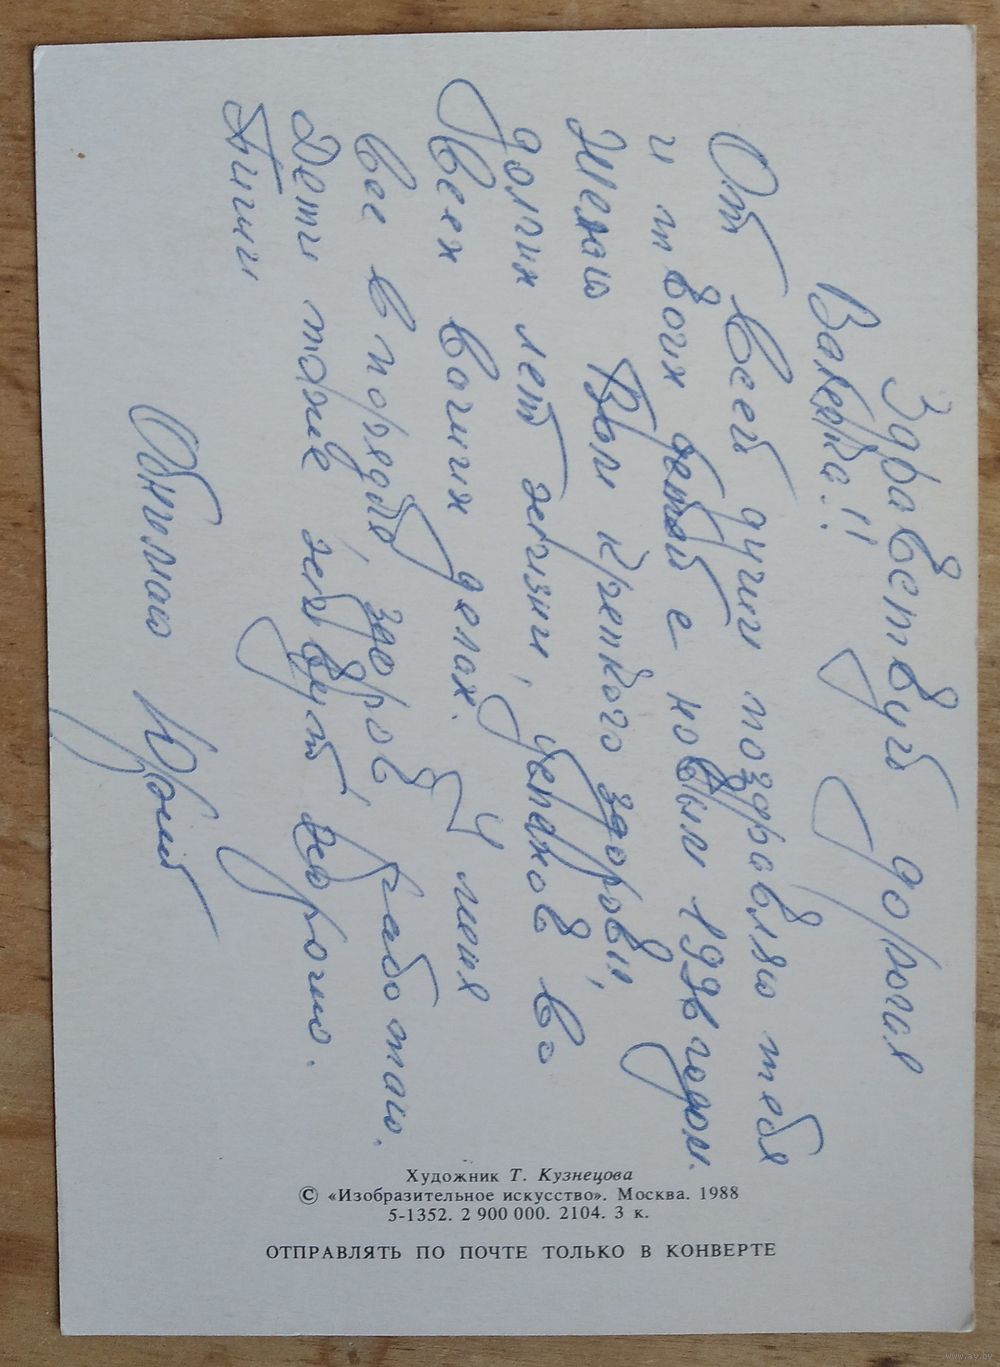 Здравствуй дорогая
Валерка!!
От всей души поздравляю тебя
и твоих детей с новым 1996 годом.
Желаю Вам крепкого здоровья,
долгих лет жизни, успехов во
Всех ваших делах. У меня
все в порядке, здоров, работаю.
Дети тоже живут хорошо.
Пиши
Обнимаю Юрий
Художник Т. Кузнецова
© «Изобразительное искусство». Москва. 1988
5-1352. 2 900 000. 2104. 3 к.
ОТПРАВЛЯТЬ ПО ПОЧТЕ ТОЛЬКО В КОНВЕРТЕ
www.ay.by